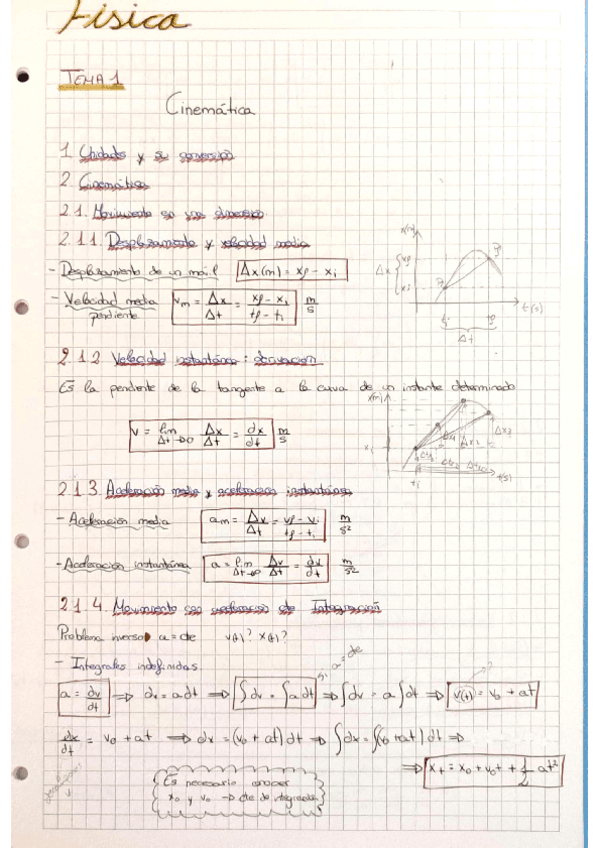 Física
TEMA 1
Cinemática
1. Unidades y su conversión
2. Cinemática
2.1. Movimiento en una dimensión
2.1.1. Desplazamiento y velocidad media
- Desplazamiento de un móvil Δx(m) = xf - xi
- Velocidad media vm = Δx/Δt = (xf - xi)/(tf - ti) m/s
pendiente
x(m)
Δx { xf
xi
t(s)
ti tf
Δt
2.1.2 Velocidad instantánea: derivación
Es la pendiente de la tangente a la curva de un instante determinado
v = lim Δt→0 Δx/Δt = dx/dt m/s
x(m)
xi
Δx1
Δx2
t(s)
ti
2.1.3. Aceleración media y aceleración instantánea
- Aceleración media am = Δv/Δt = (vf - vi)/(tf - ti) m/s²
- Aceleración instantánea a = lim Δt→0 Δv/Δt = dv/dt m/s²
2.1.4. Movimiento con aceleración cte Integración
Problema inverso a = cte v(t)? x(t)?
- Integrales indefinidas
si a = cte
a = dv/dt ⇒ dv = a dt ⇒ ∫dv = ∫a dt ⇒ ∫dv = a∫dt ⇒ v(t) = v0 + at
dx/dt = v0 + at ⇒ dx = (v0 + at) dt ⇒ ∫dx = ∫(v0 + at) dt ⇒
⇒ xt = x0 + v0t + 1/2 at²
Es necesario conocer
x0 y v0 → cte de integración